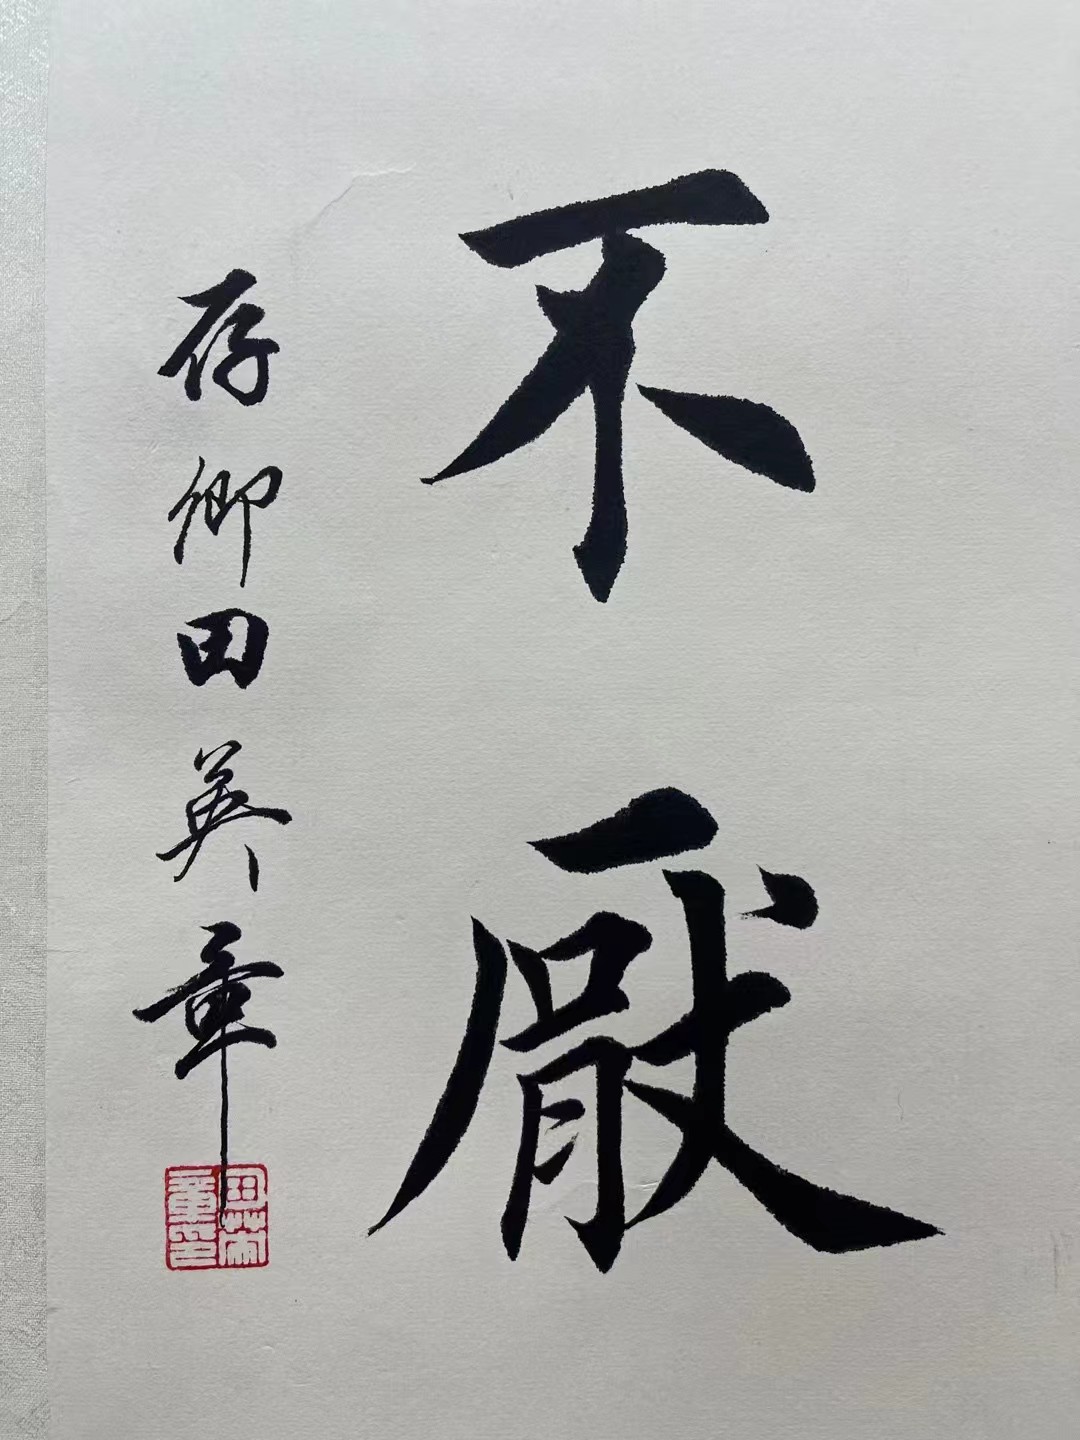 不厭
存卿田英章
田英章印